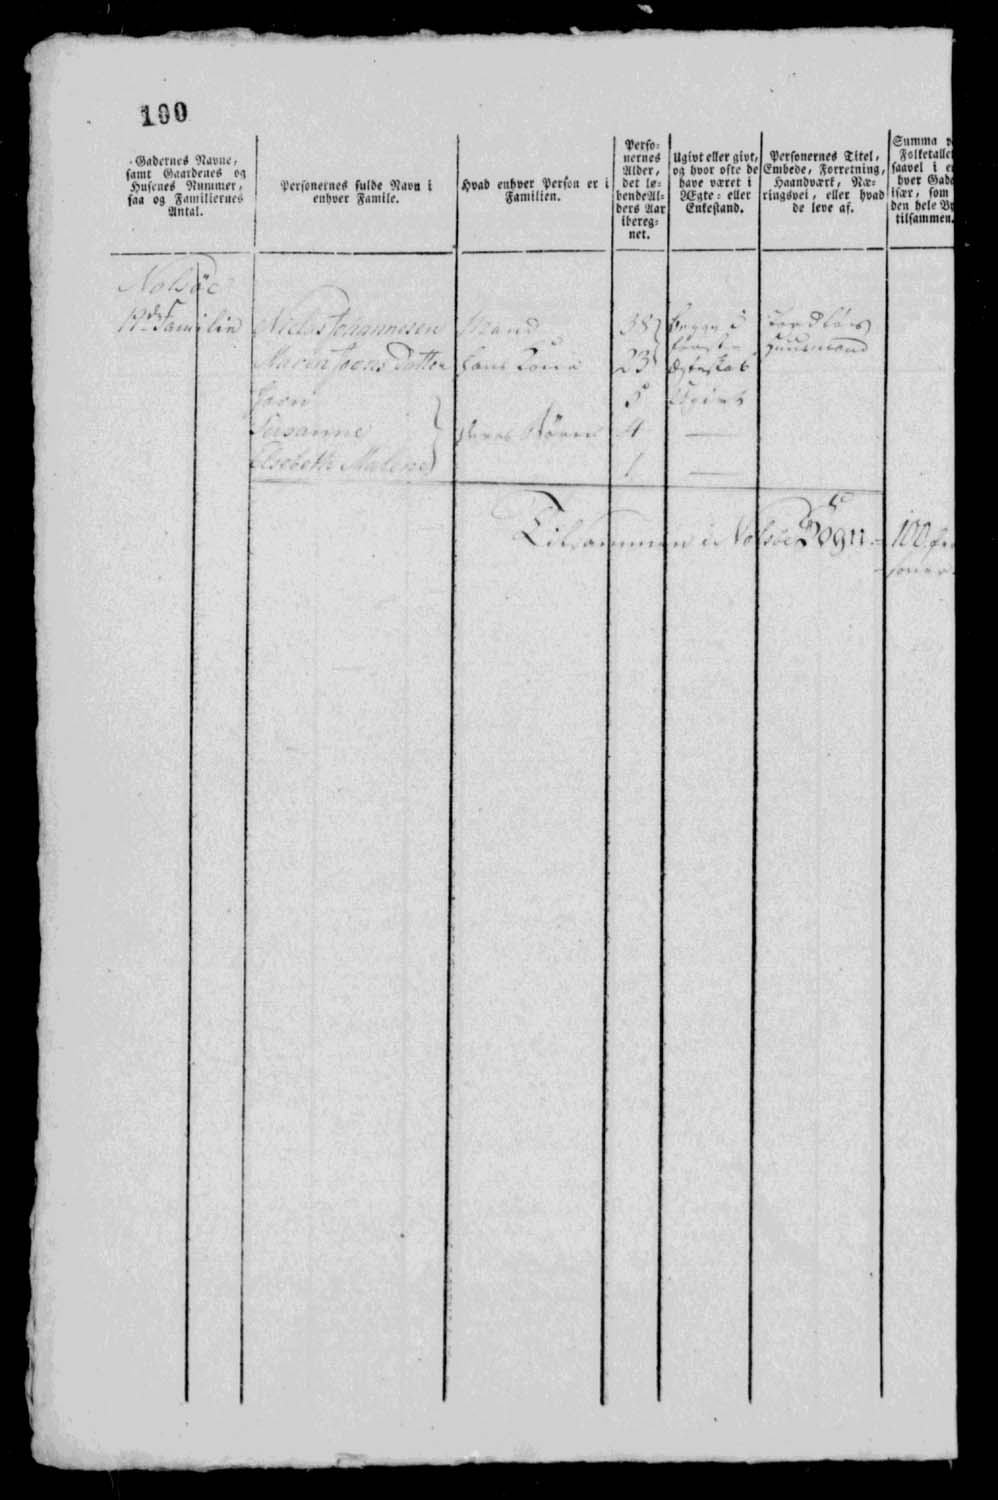 100
Gadernes Navne, samt Gaardenes og Husenes Nummer, saa og Familiernes Antal.
Personernes fulde Navn i enhver Familie.
Hvad enhver Person er i Familien.
Personernes Alder, det løbende Alders Aar iberegnet.
Ugivt eller givt, og hvor ofte de have været i Ægte- eller Enkestand.
Personernes Titel, Embede, Forretning, Haandværk, Næringsvei, eller hvad de leve af.
Summa Folketallet saavel i hver Gade især, som den hele By tilsammen.
Nolsöe
Familie Niclas Johannesen Mand 38 begge i Jordløs
Maren Joens Datter hans Kone 23 første Ægteskab Huusmand
Joen 5 Ugivt
Susanne deres Börn 4 —
Elsebeth Malene 1 —
Tilsammen i Nolsöe Sogn = 100